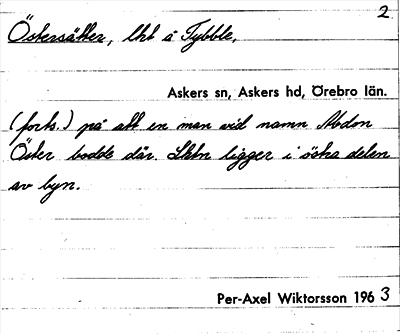 2
Östersätter, lht å Tybble,
Askers sn, Askers hd, Örebro län.
(forts.) på att en man vid namn Abdon
Öster bodde där. Lhtn ligger i östra delen
av byn.
Per-Axel Wiktorsson 1963